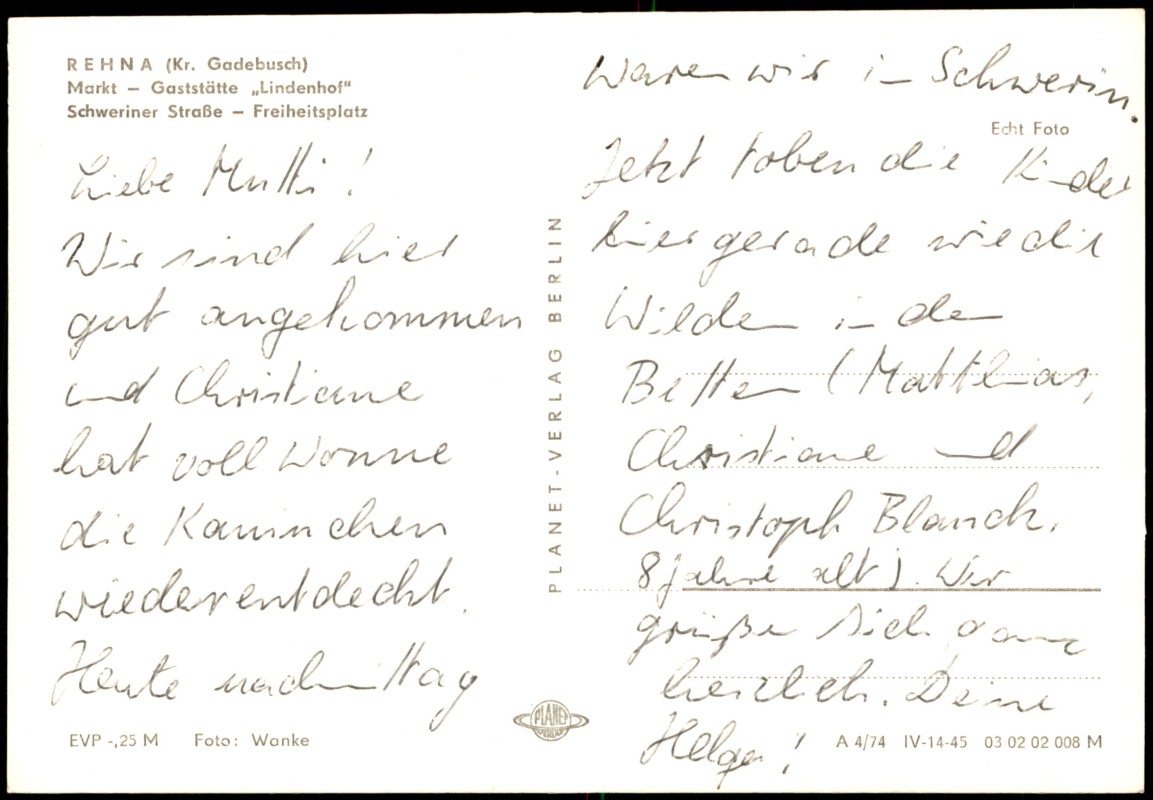 REHNA (Kr. Gadebusch)
Markt – Gaststätte „Lindenhof"
Schweriner Straße – Freiheitsplatz
Liebe Mutti!
Wir sind hier
gut angekommen
und Christiane
hat voll Wonne
die Kaninchen
wiederentdeckt.
Heute nachmittag
EVP -,25 M Foto: Wanke
PLANET-VERLAG BERLIN
PLANET
VERLAG
waren wir in Schwerin.
Echt Foto
Jetzt toben die Kinder
hier gerade wie die
Wilden in den
Betten (Matthias,
Christiane und
Christoph Blanck,
8 Jahre alt). Wir
grüßen Dich ganz
herzlich. Deine
Helga!
A 4/74 IV-14-45 03 02 02 008 M